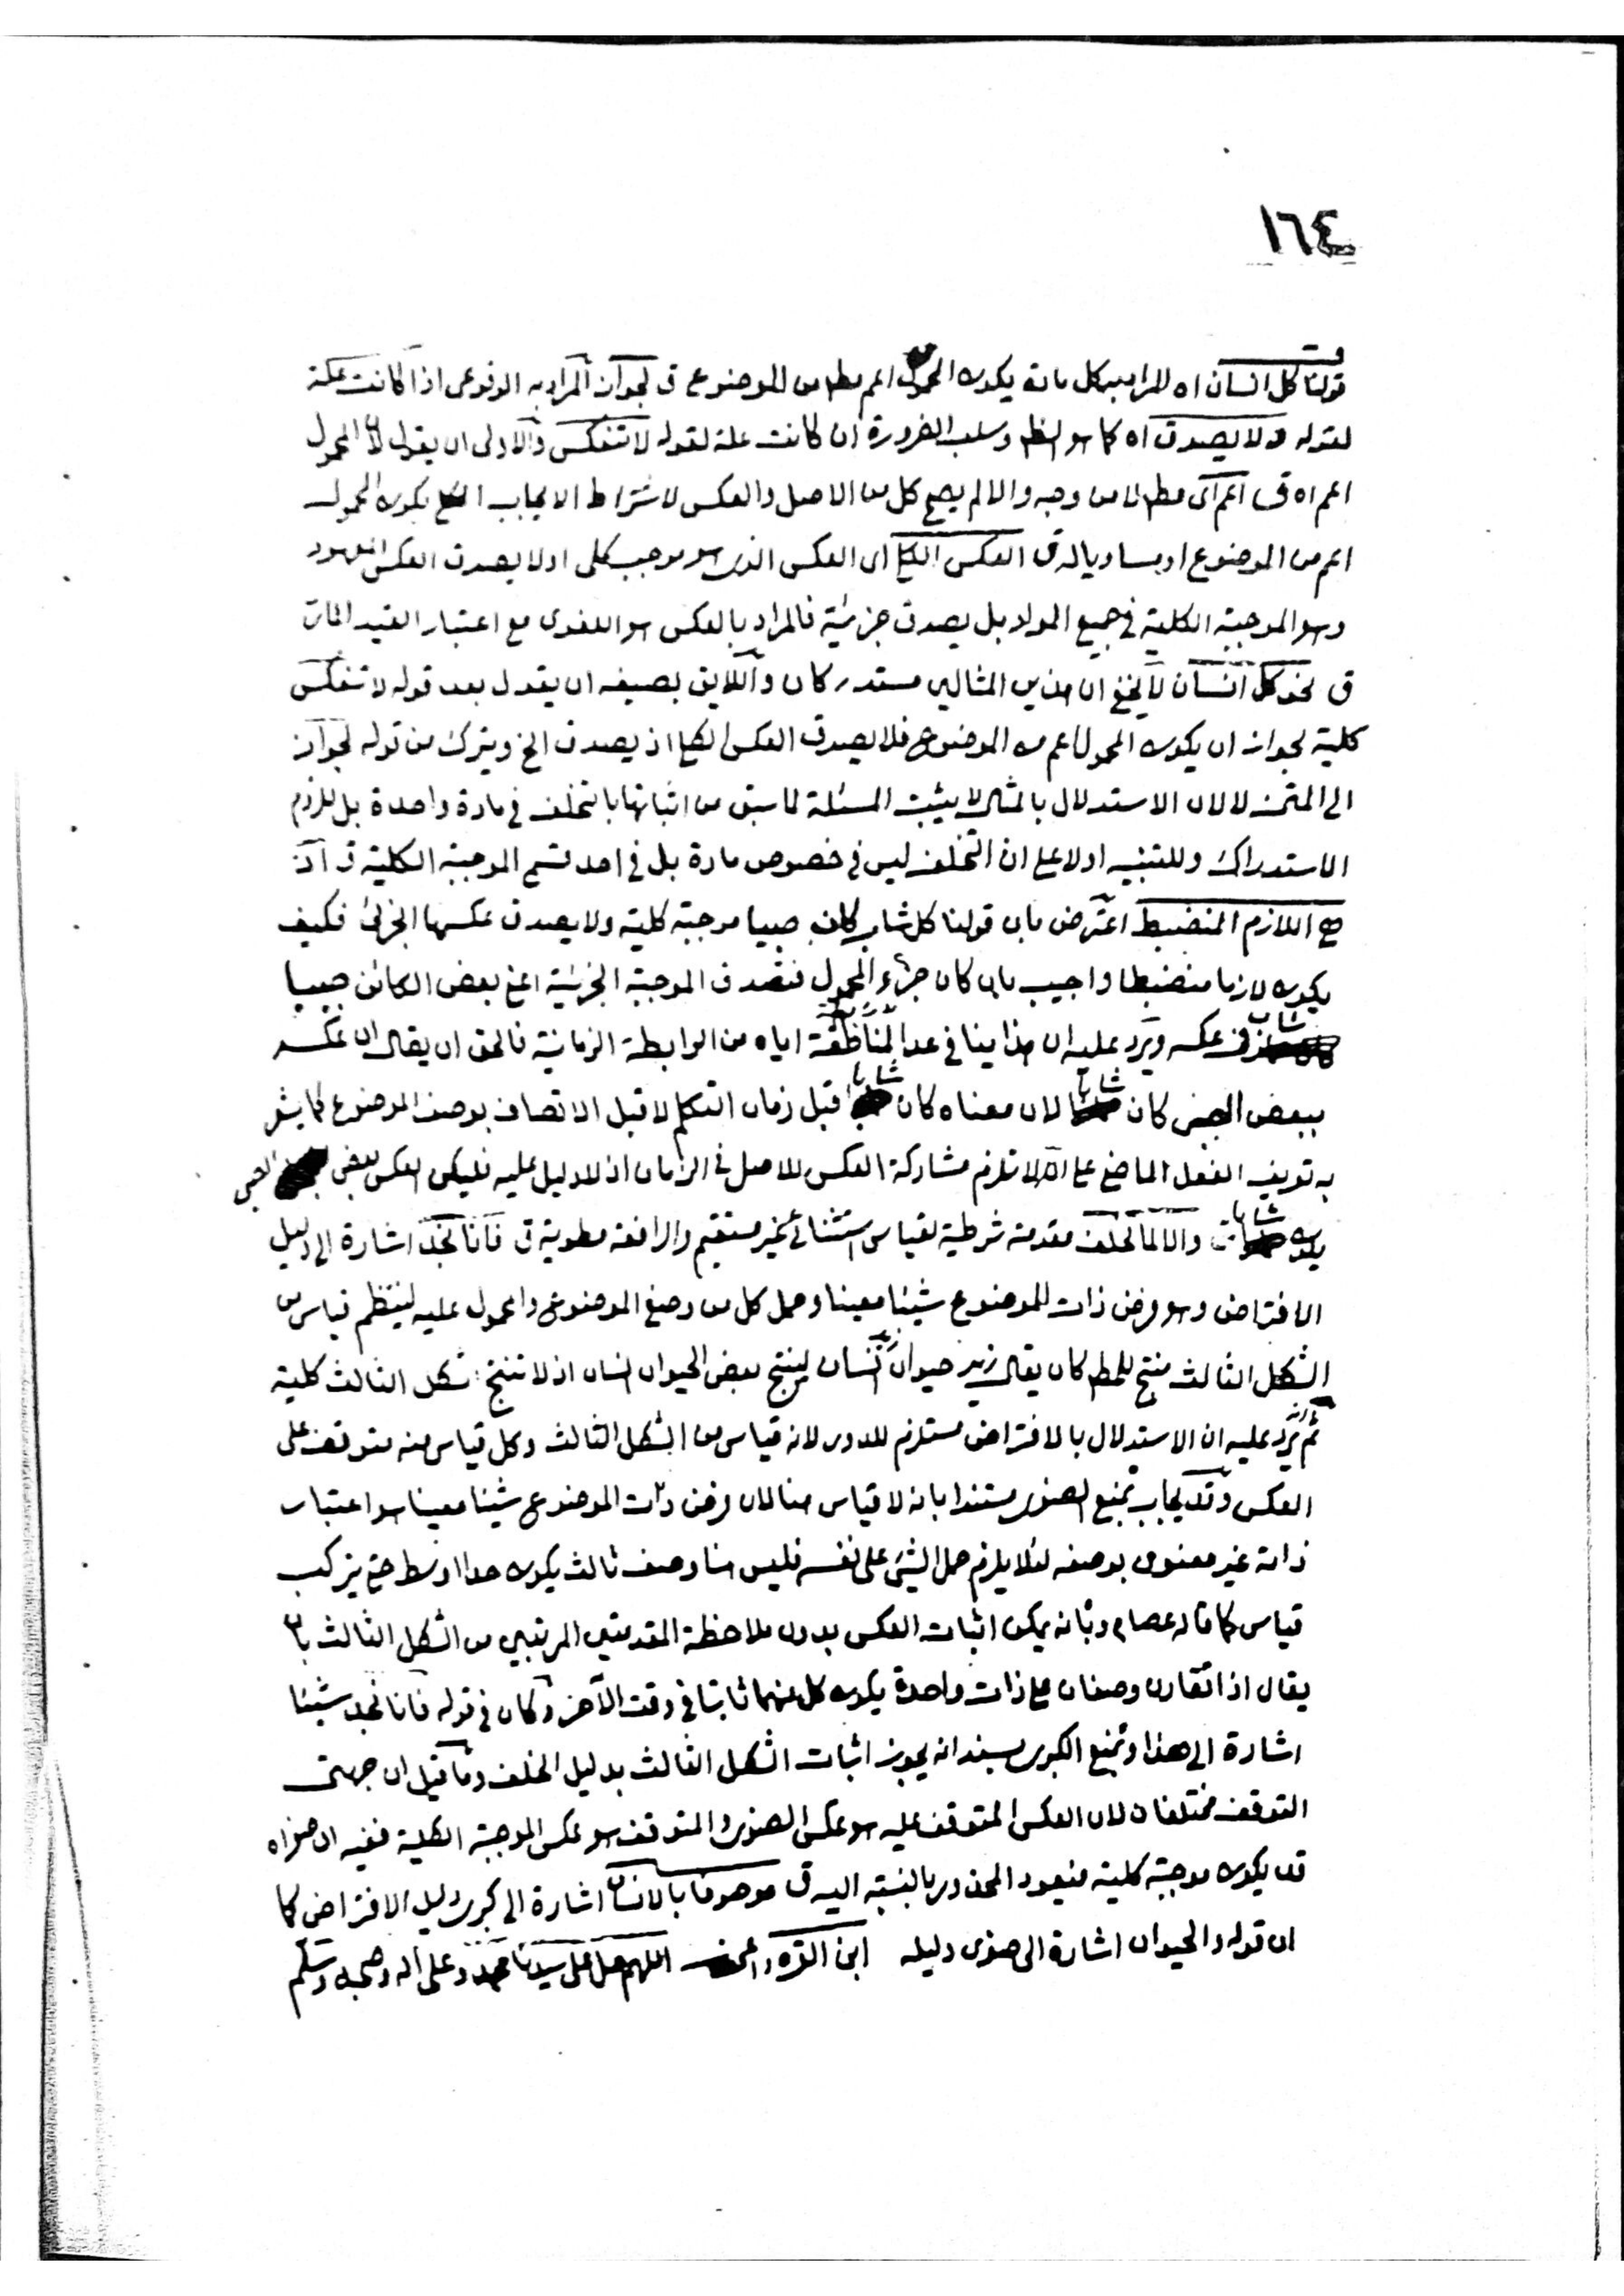 ١٦٤
قولنا كل انسان اه المراد بكل مادة يكون المحمول اعم مط من الموضوع ق لجواز المراد به الوقوعى اذا كانت علة
لقوله ولا يصدق اه كما هو الظ وسلب الضرورة ان كانت علة لقوله لا تنعكس والاولى ان يقول لان المحمول
اعم اه ق اعم اى مط لا من وجه والا لم يصح كل من الاصل والعكس لاشتراط الايجاب يكون المحمول
اعم من الموضوع او مساويا له ق العكس الكلى اى العكس الذى هو موجب كلى او لا يصدق العكس المعهود
وهو الموجبة الكلية فى جميع المواد بل يصدق جزئية فالمراد بالعكس هو اللغوى مع اعتبار القيد المار
ق نحو كل انسان لا يخفى ان هذين المثالين مستدركان واللايق بصنيعه ان يقول بعد قوله لا تنعكس
كلية لجواز ان يكون المحمول اعم من الموضوع فلا يصدق العكس الكلى اذ يصدق الخ ويترك من قوله لجواز
الى المتن لا لان الاستدلال بالمثال لا يثبت المسئلة لما سبق من اثباتها بالتخلف فى مادة واحدة بل للزوم
الاستدراك وللتنبيه اولا على ان التخلف ليس فى خصوص مادة بل فى احد قسمى الموجبة الكلية ق اذ
هى اللازم المنضبط اعترض بان قولنا كل شاب كان صبيا موجبة كلية ولا يصدق عكسها الجزئى فكيف
يكون لازما منضبطا واجيب بان كان جزء المحمول فتصدق الموجبة الجزئية اعنى بعض الكائن صبيا
شاب فى عكسه ويرد عليه ان هذا ينافى عد المناطقة اياه من الرابطة الزمانية فالحق ان يقال ان عكسه
ببعض الصبى كان شابا لان معناه كان شابا قبل زمان التكلم لا قبل الاتصاف بوصف الموضوع كما يشعر
به تعريف الفعل الماضى على انه لا تلزم مشاركة العكس للاصل فى الزمان اذ لا دليل عليه فليكن العكس بعض الصبى
يكون شابا ق والا لما تخلف مقدمة شرطية لقياس استثنائى غير مستقيم والرافعة مطوية ق فانا نجد اشارة الى دليل
الافتراض وهو فرض ذات الموضوع شيئا معينا وحمل كل من وصفى الموضوع والمحمول عليه لينتظم قياس من
الشكل الثالث منتج للمط كان يقال زيد حيوان وزيد انسان لينتج بعض الحيوان انسان اذ لا تنتج الشكل الثالث كلية
ثم انه يرد عليه ان الاستدلال بالافتراض مستلزم للدور لانه قياس من الشكل الثالث وكل قياس منه متوقف على
العكس وقد يجاب بمنع الصغرى مستندا بانه لا قياس هنا لان فرض ذات الموضوع شيئا معينا هو اعتبار
ذاته غير معنون بوصفه لئلا يلزم حمل الشىء على نفسه فليس هنا وصف ثالث يكون حدا اوسط حتى يتركب
قياس كما قاله عصام وبانه يمكن اثبات العكس بدون ملاحظة المقدمتين المرتبتين من الشكل الثالث بان
يقال اذا تقارن وصفان على ذات واحدة يكون كل منهما ثابتا فى وقت الآخر وكان فى قوله فانا نجد شيئا
اشارة الى هذا وبمنع الكبرى بسند انه يجوز اثبات الشكل الثالث بدليل الخلف وما قيل ان جهتى
التوقف مختلفان لان العكس المتوقف عليه هو عكس الصغرى والمتوقف هو عكس الموجبة الكلية ففيه ان صغراه
قد يكون موجبة كلية فيعود المحذور بالنسبة اليه ق موصوفا بالانسان اشارة الى كبرى دليل الافتراض كما
ان قوله والحيوان اشارة الى صغرى دليله ابن القره داغى اللهم صل على سيدنا محمد وعلى آله وصحبه وسلم